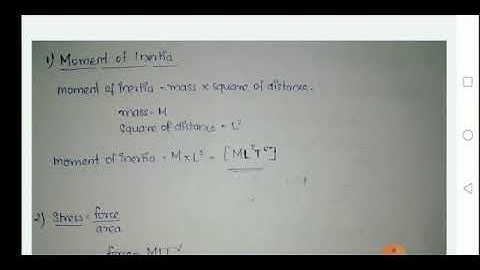 1) Moment of Inertia
moment of inertia = mass x square of distance.
mass = M
Square of distance = L²
moment of inertia = M x L² = [ML²T⁰]
2) Stress = force
area
force = MLT⁻²